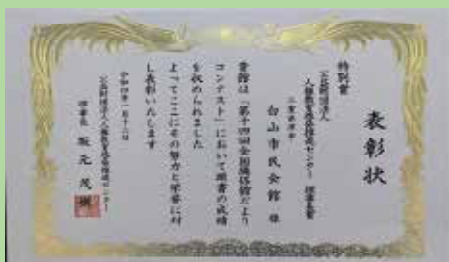 表彰状
特別賞
公益財団法人
人権教育啓発推進センター 理事長賞
三重県津市
白山市民会館 様
貴館は「第十四回全国隣保館だより
コンテスト」において頭書の成績
を収められました
よってここにその努力と栄誉に対
し表彰いたします
令和四年一月十六日
公益財団法人人権教育啓発推進センター
理事長 坂元 茂樹